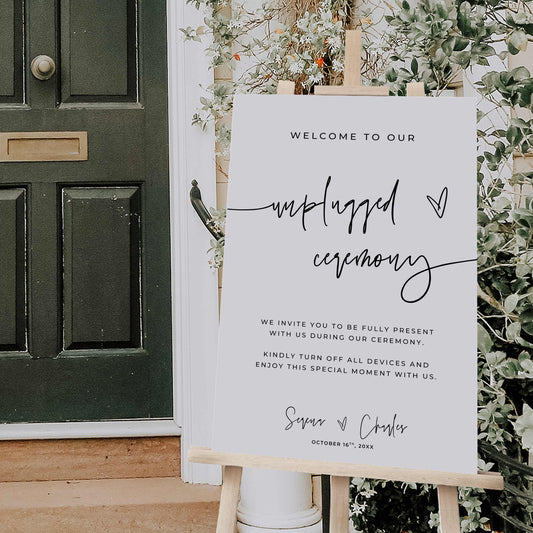 WELCOME TO OUR
unplugged
ceremony
WE INVITE YOU TO BE FULLY PRESENT
WITH US DURING OUR CEREMONY.
KINDLY TURN OFF ALL DEVICES AND
ENJOY THIS SPECIAL MOMENT WITH US.
Serena ♡ Charles
OCTOBER 16TH, 20XX